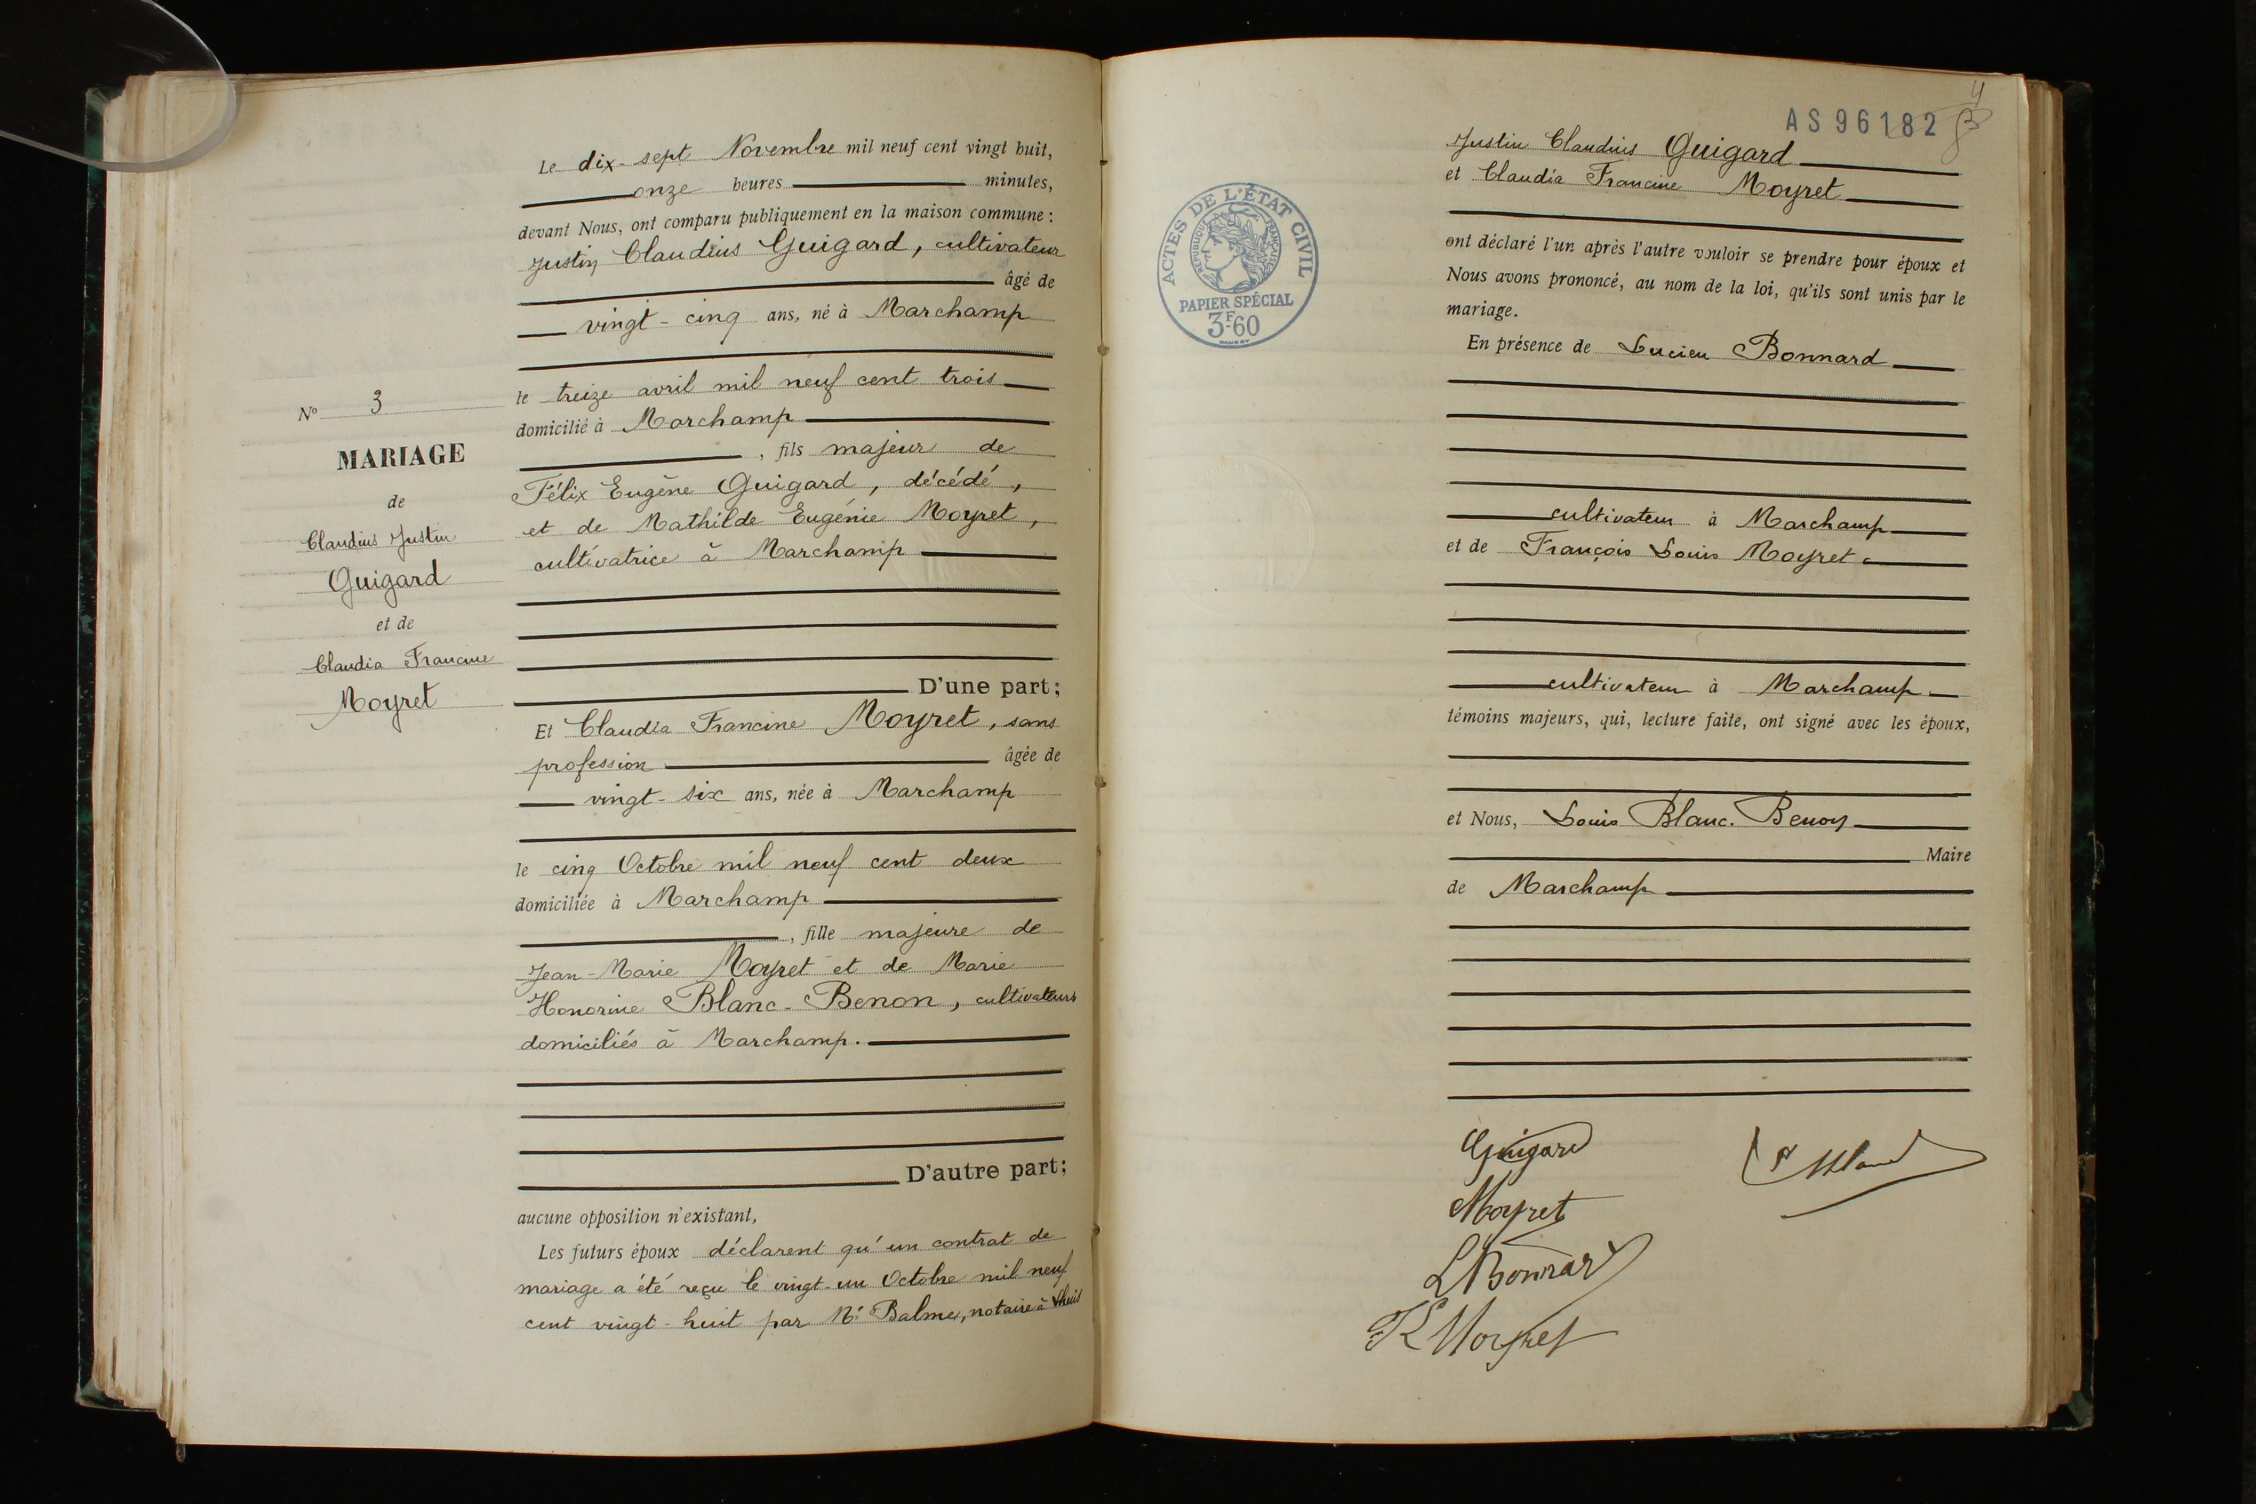 Le dix-sept Novembre mil neuf cent vingt huit,
onze heures minutes,
devant Nous, ont comparu publiquement en la maison commune :
Justin Claudius Guigard, cultivateur
âgé de
vingt-cinq ans, né à Marchamp
le treize avril mil neuf cent trois
domicilié à Marchamp
, fils majeur de
Félix Eugène Guigard, décédé,
et de Mathilde Eugénie Moyret,
cultivatrice à Marchamp
D'une part;
Et Claudia Francine Moyret, sans
profession âgée de
vingt-six ans, née à Marchamp
le cinq Octobre mil neuf cent deux
domiciliée à Marchamp
, fille majeure de
Jean-Marie Moyret et de Marie
Honorine Blanc-Benon, cultivateurs
domiciliés à Marchamp.
D'autre part;
aucune opposition n'existant,
Les futurs époux déclarent qu'un contrat de
mariage a été reçu le vingt-un Octobre mil neuf
cent vingt-huit par Me Balme, notaire à Lhuis
No 3
MARIAGE
de
Claudius Justin
Guigard
et de
Claudia Francine
Moyret
4
AS96182
ACTES DE L'ÉTAT CIVIL
RÉPUBLIQUE FRANÇAISE
PAPIER SPÉCIAL
3F-60
Justin Claudius Guigard
et Claudia Francine Moyret
ont déclaré l'un après l'autre vouloir se prendre pour époux et
Nous avons prononcé, au nom de la loi, qu'ils sont unis par le
mariage.
En présence de Lucien Bonnard
cultivateur à Marchamp
et de François Louis Moyret
cultivateur à Marchamp
témoins majeurs, qui, lecture faite, ont signé avec les époux,
et Nous, Louis Blanc-Benon
Maire
de Marchamp
Guigard
Moyret
L Bonnard
F L Moyret